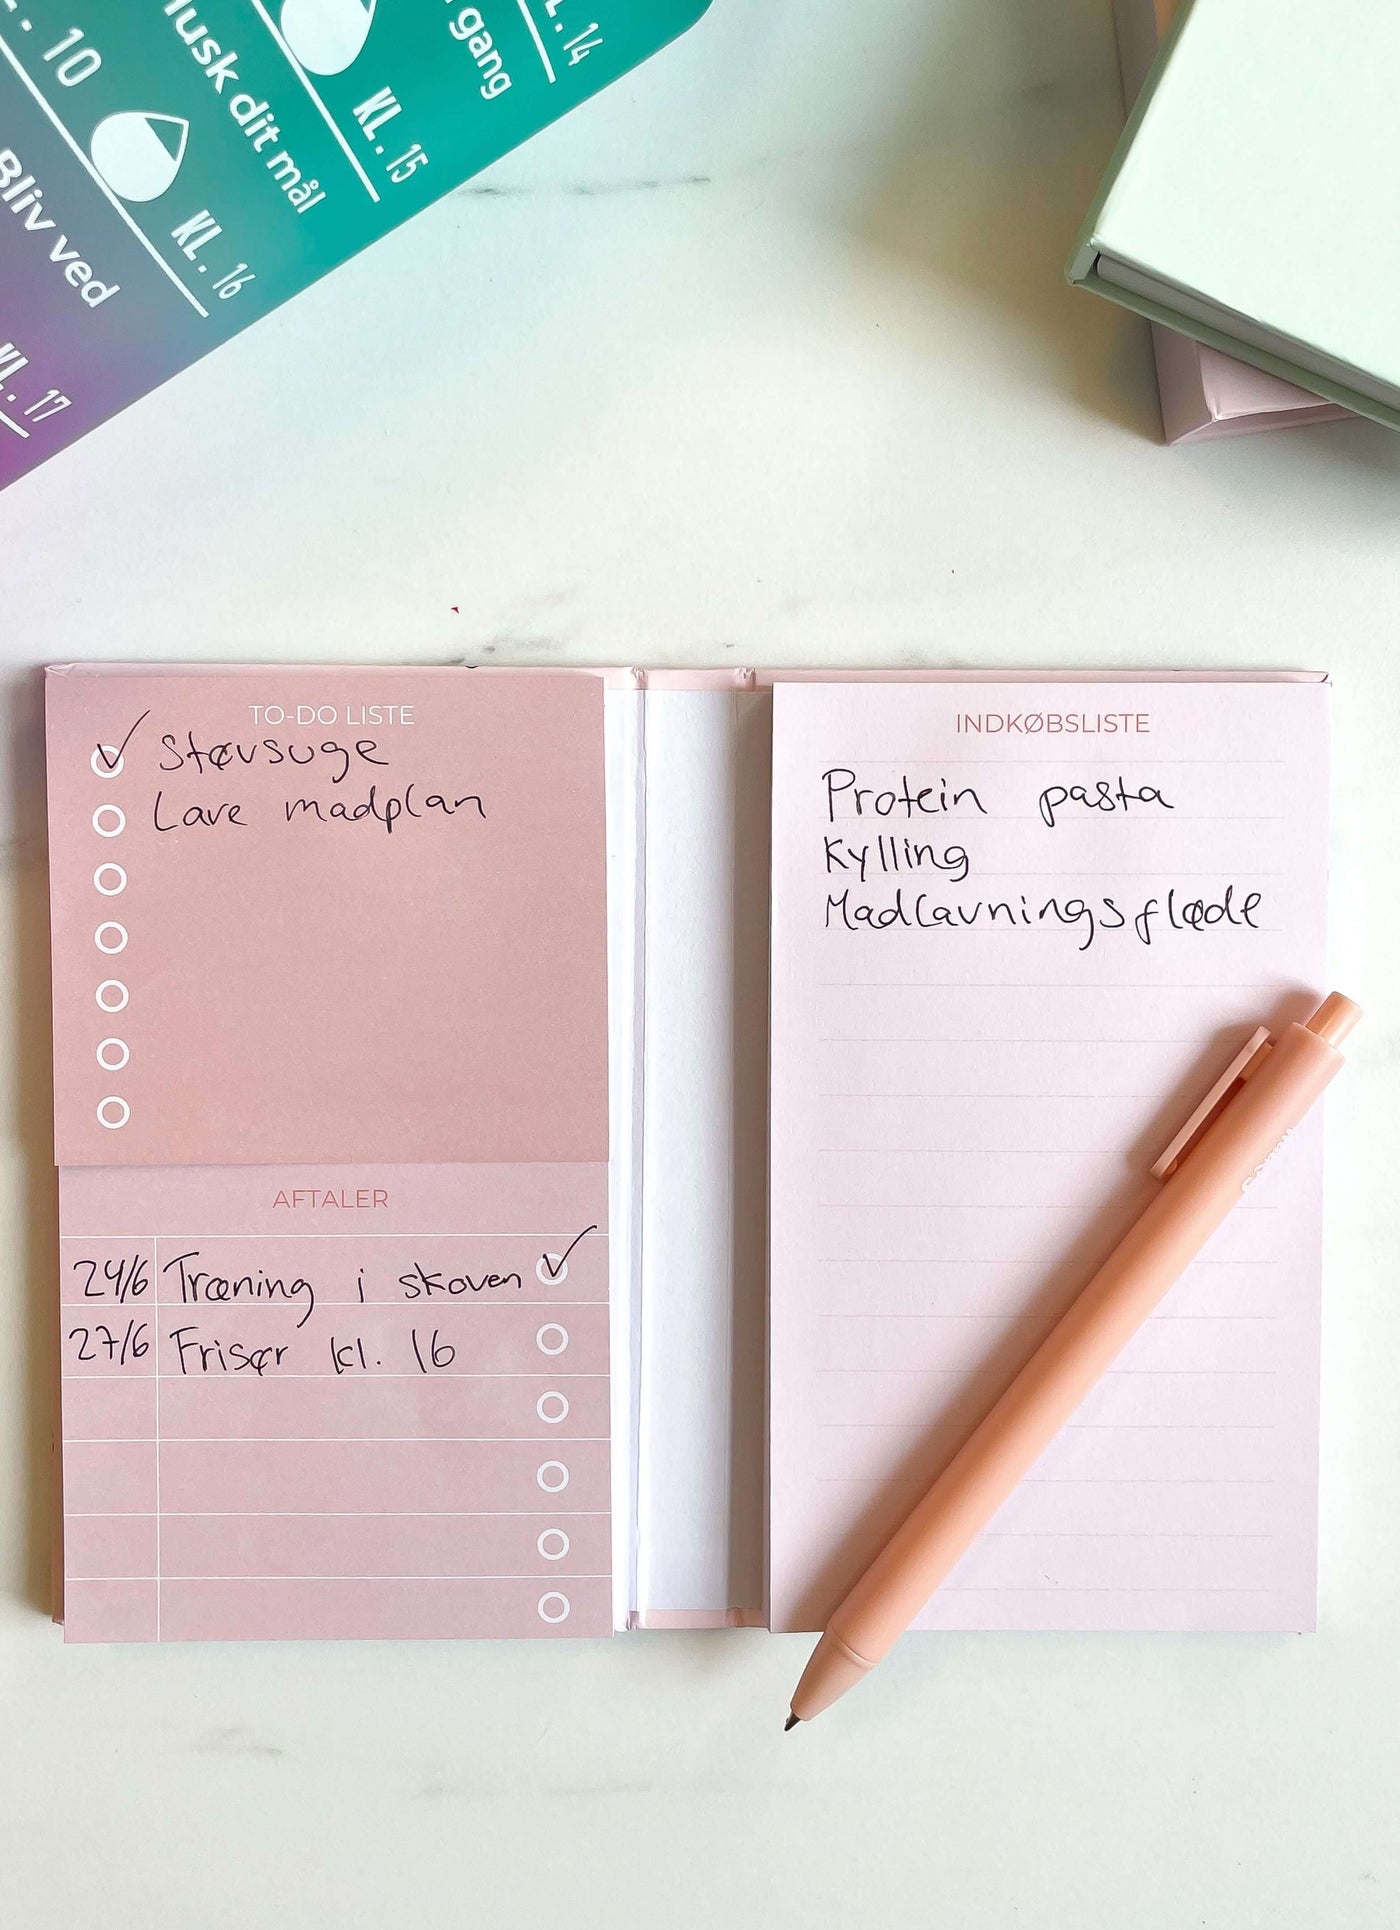 KL. 14
gang
KL. 15
usk dit mål
10
KL. 16
Bliv ved
17
TO-DO LISTE
Støvsuge
Lave madplan
AFTALER
24/6 Træning i skoven
27/6 Frisør kl. 16
INDKØBSLISTE
Protein pasta
Kylling
Madlavningsfløde